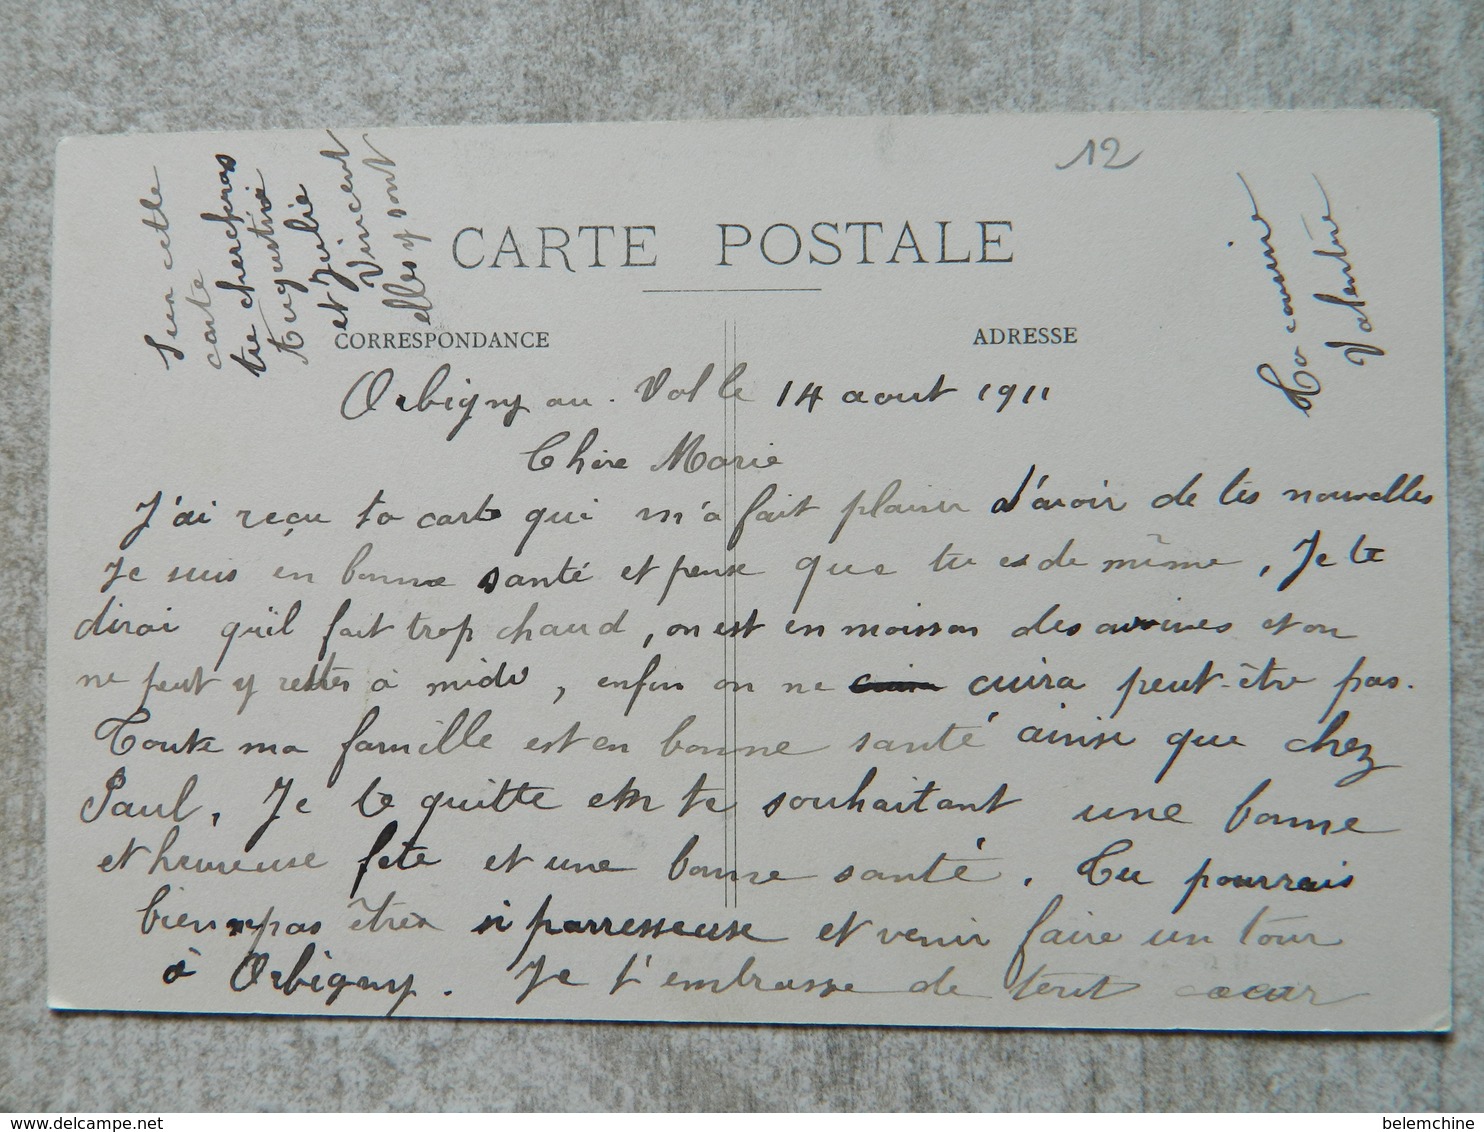 12
Sur cette
carte
tu chercheras
Augustine
et Julie
Vincent
elles y sont
Ta cousine
Valentine
CARTE POSTALE
CORRESPONDANCE
ADRESSE
Orbigny au Val le 14 aout 1911
Chère Marie
J'ai reçu ta carte qui m'a fait plaisir d'avoir de tes nouvelles
Je suis en bonne santé et pense que tu es de même, Je te
dirai qu'il fait trop chaud, on est en moisson des avoines et on
ne peut y rester à midi, enfin on ne cuira peut-être pas.
Toute ma famille est en bonne santé ainsi que chez
Paul, Je te quitte en te souhaitant une bonne
et heureuse fete et une bonne santé. Tu pourrais
bien pas être si parresseuse et venir faire un tour
à Orbigny. Je t'embrasse de tout coeur
belemchine